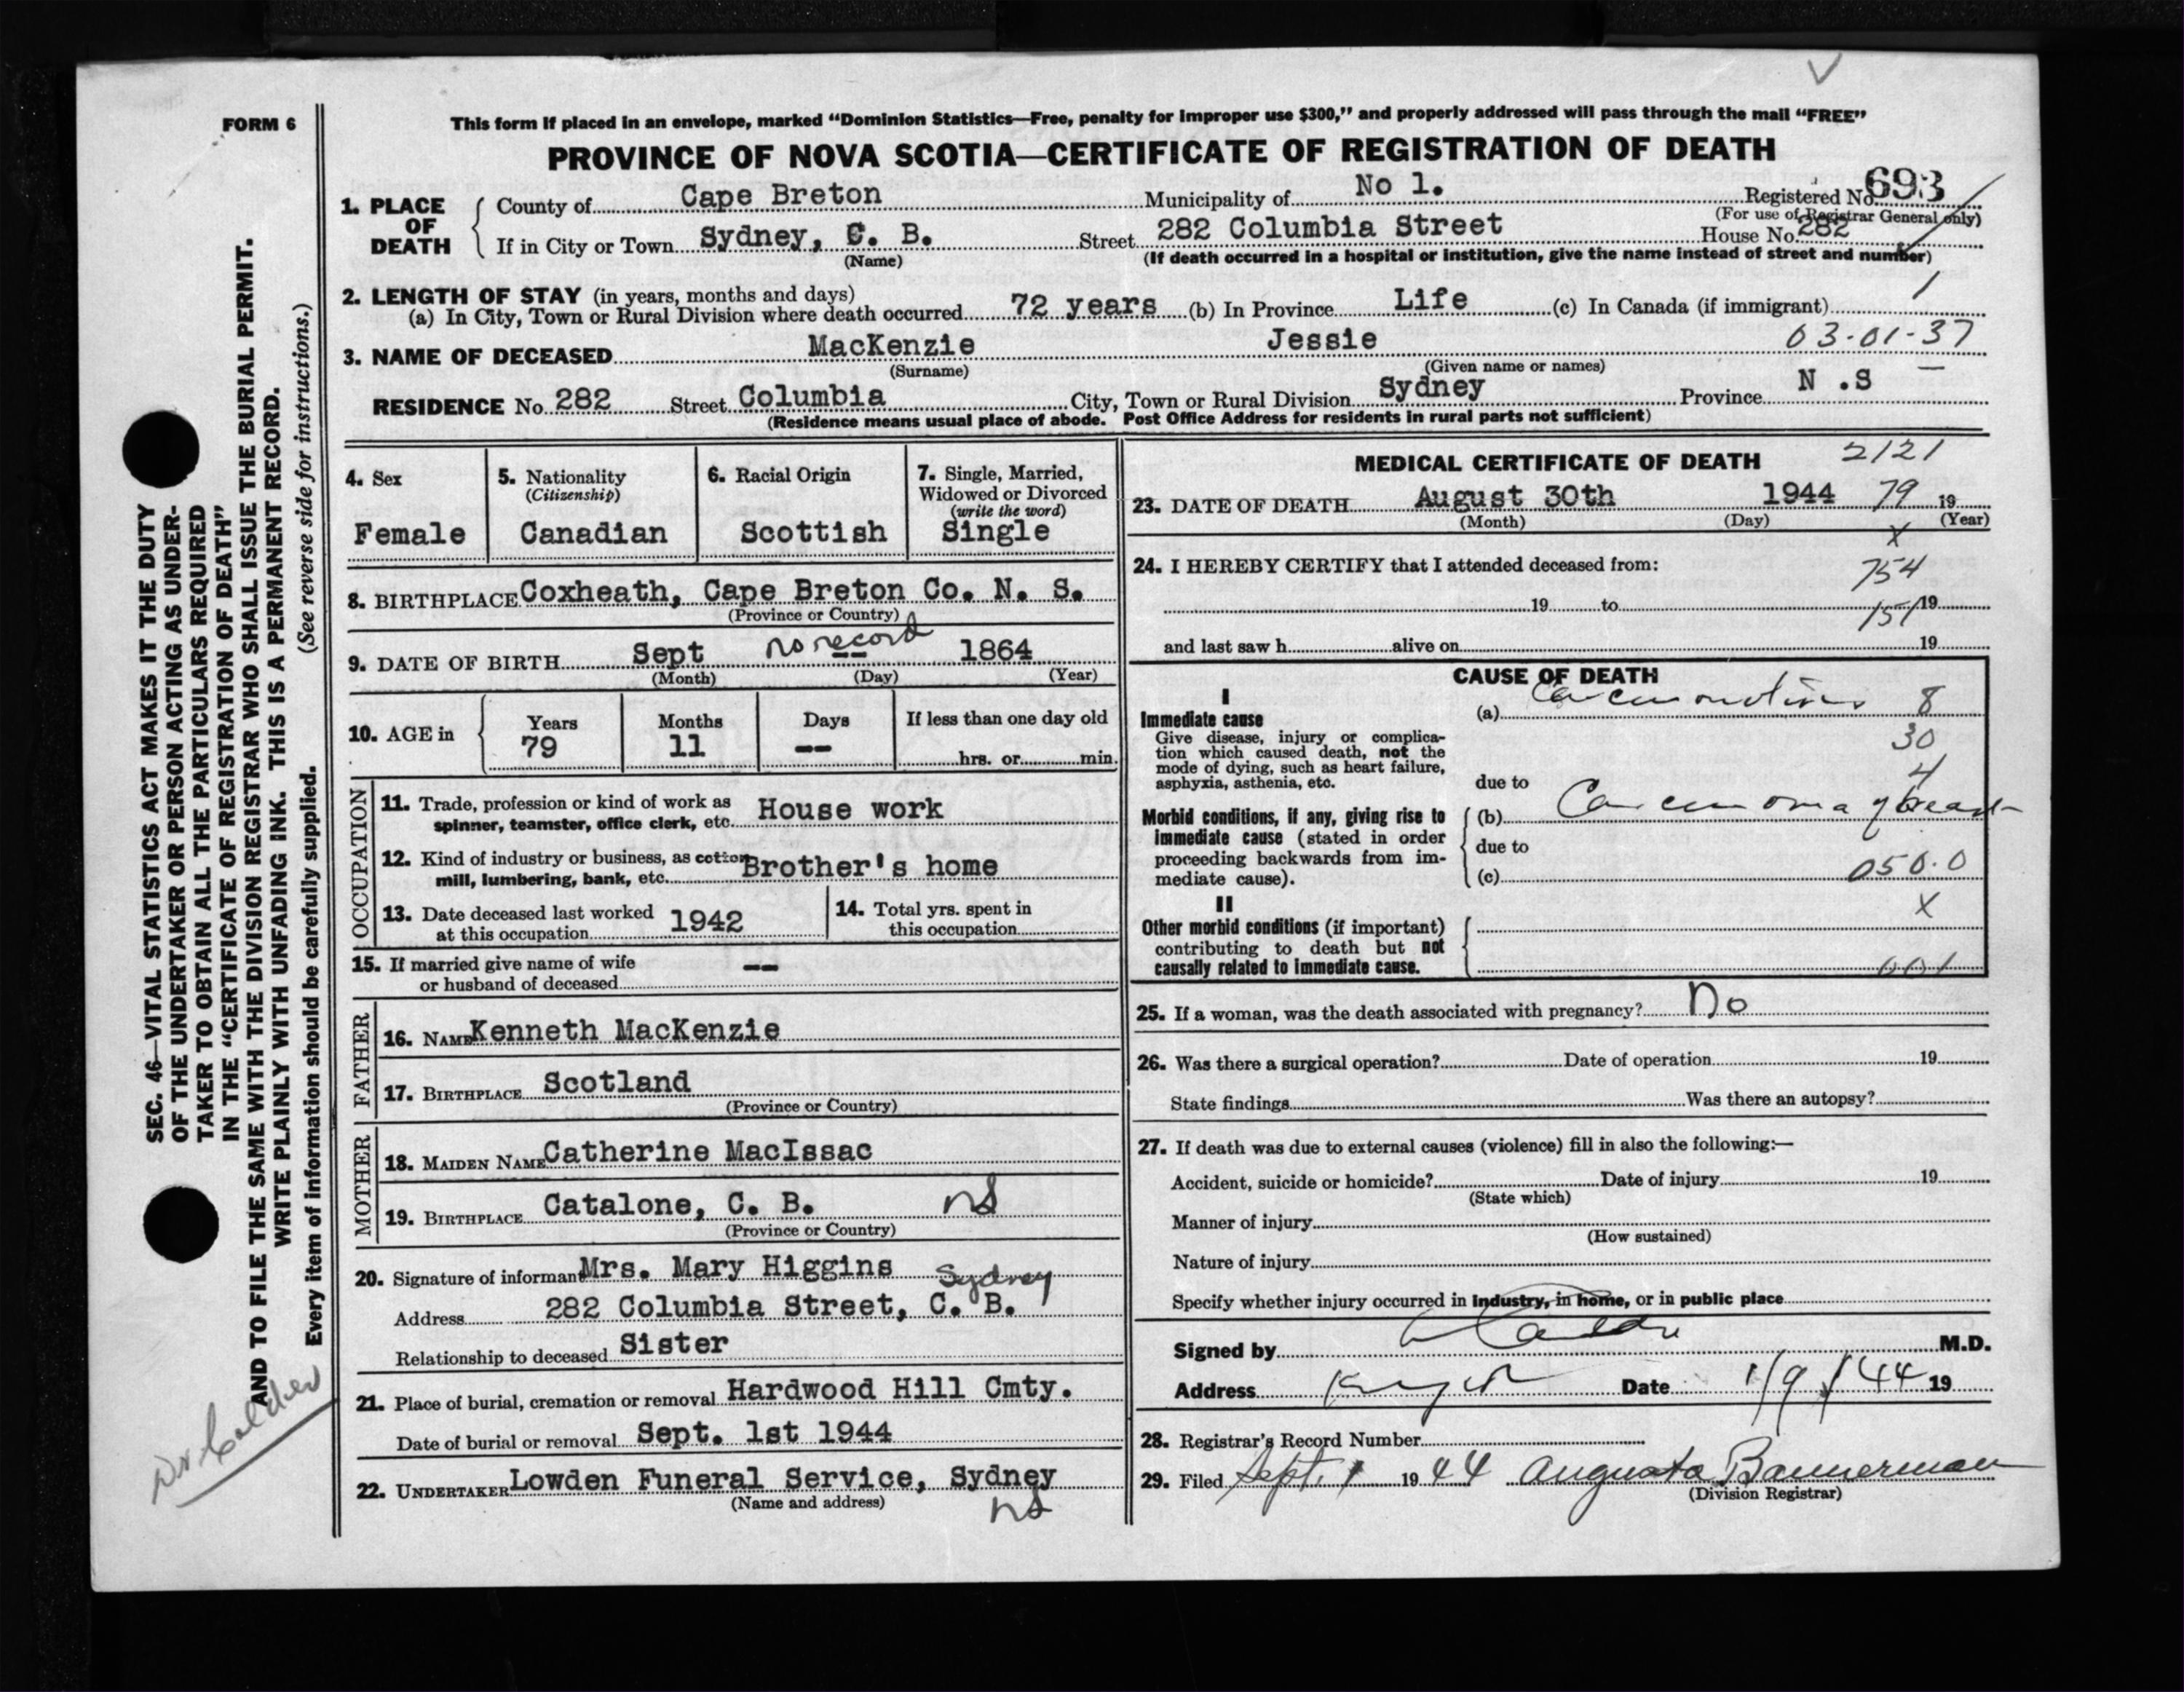 FORM 6
This form if placed in an envelope, marked “Dominion Statistics—Free, penalty for improper use $300,” and properly addressed will pass through the mail “FREE”
PROVINCE OF NOVA SCOTIA—CERTIFICATE OF REGISTRATION OF DEATH
1. PLACE OF DEATH
County of Cape Breton Municipality of No 1. Registered No. 693
(For use of Registrar General only)
If in City or Town Sydney, C. B. Street 282 Columbia Street House No. 282
(Name) (If death occurred in a hospital or institution, give the name instead of street and number)
2. LENGTH OF STAY (in years, months and days)
(a) In City, Town or Rural Division where death occurred 72 years (b) In Province Life (c) In Canada (if immigrant)
3. NAME OF DECEASED MacKenzie Jessie 03-01-37
(Surname) (Given name or names)
RESIDENCE No. 282 Street Columbia City, Town or Rural Division Sydney Province N .S
(Residence means usual place of abode. Post Office Address for residents in rural parts not sufficient)
4. Sex
Female
5. Nationality
(Citizenship)
Canadian
6. Racial Origin
Scottish
7. Single, Married,
Widowed or Divorced
(write the word)
Single
8. BIRTHPLACE Coxheath, Cape Breton Co. N. S.
(Province or Country)
9. DATE OF BIRTH Sept no record -- 1864
(Month) (Day) (Year)
10. AGE in
Years Months Days If less than one day old
79 11 -- hrs. or min.
OCCUPATION
11. Trade, profession or kind of work as
spinner, teamster, office clerk, etc. House work
12. Kind of industry or business, as cotton
mill, lumbering, bank, etc. Brother's home
13. Date deceased last worked
at this occupation 1942
14. Total yrs. spent in
this occupation
15. If married give name of wife
or husband of deceased --
FATHER
16. NAME Kenneth MacKenzie
17. BIRTHPLACE Scotland
(Province or Country)
MOTHER
18. MAIDEN NAME Catherine MacIssac
19. BIRTHPLACE Catalone, C. B. NS
(Province or Country)
20. Signature of informant Mrs. Mary Higgins Sydney
Address 282 Columbia Street, C. B.
Relationship to deceased Sister
21. Place of burial, cremation or removal Hardwood Hill Cmty.
Date of burial or removal Sept. 1st 1944
22. UNDERTAKER Lowden Funeral Service, Sydney
(Name and address) NS
MEDICAL CERTIFICATE OF DEATH 2121
23. DATE OF DEATH August 30th 1944 79 19
(Month) (Day) (Year)
x
24. I HEREBY CERTIFY that I attended deceased from: 754
19 to 19 151
and last saw h alive on 19
CAUSE OF DEATH
I
Immediate cause
Give disease, injury or complica-
tion which caused death, not the
mode of dying, such as heart failure,
asphyxia, asthenia, etc.
(a) 8
30
4
due to
Morbid conditions, if any, giving rise to
immediate cause (stated in order
proceeding backwards from im-
mediate cause).
(b) Carcinoma of breast
due to
(c) 050.0
x
II
Other morbid conditions (if important)
contributing to death but not
causally related to immediate cause.
001
25. If a woman, was the death associated with pregnancy? No
26. Was there a surgical operation? Date of operation 19
State findings Was there an autopsy?
27. If death was due to external causes (violence) fill in also the following:—
Accident, suicide or homicide? Date of injury 19
(State which)
Manner of injury
(How sustained)
Nature of injury
Specify whether injury occurred in industry, in home, or in public place
Signed by M.D.
Address Date 1/9/44 19
28. Registrar's Record Number
29. Filed Sept. 1 1944 Augusta Bannerman
(Division Registrar)
SEC. 46—VITAL STATISTICS ACT MAKES IT THE DUTY
OF THE UNDERTAKER OR PERSON ACTING AS UNDER-
TAKER TO OBTAIN ALL THE PARTICULARS REQUIRED
IN THE “CERTIFICATE OF REGISTRATION OF DEATH”
AND TO FILE THE SAME WITH THE DIVISION REGISTRAR WHO SHALL ISSUE THE BURIAL PERMIT.
WRITE PLAINLY WITH UNFADING INK. THIS IS A PERMANENT RECORD.
Every item of information should be carefully supplied. (See reverse side for instructions.)
Dr Calder